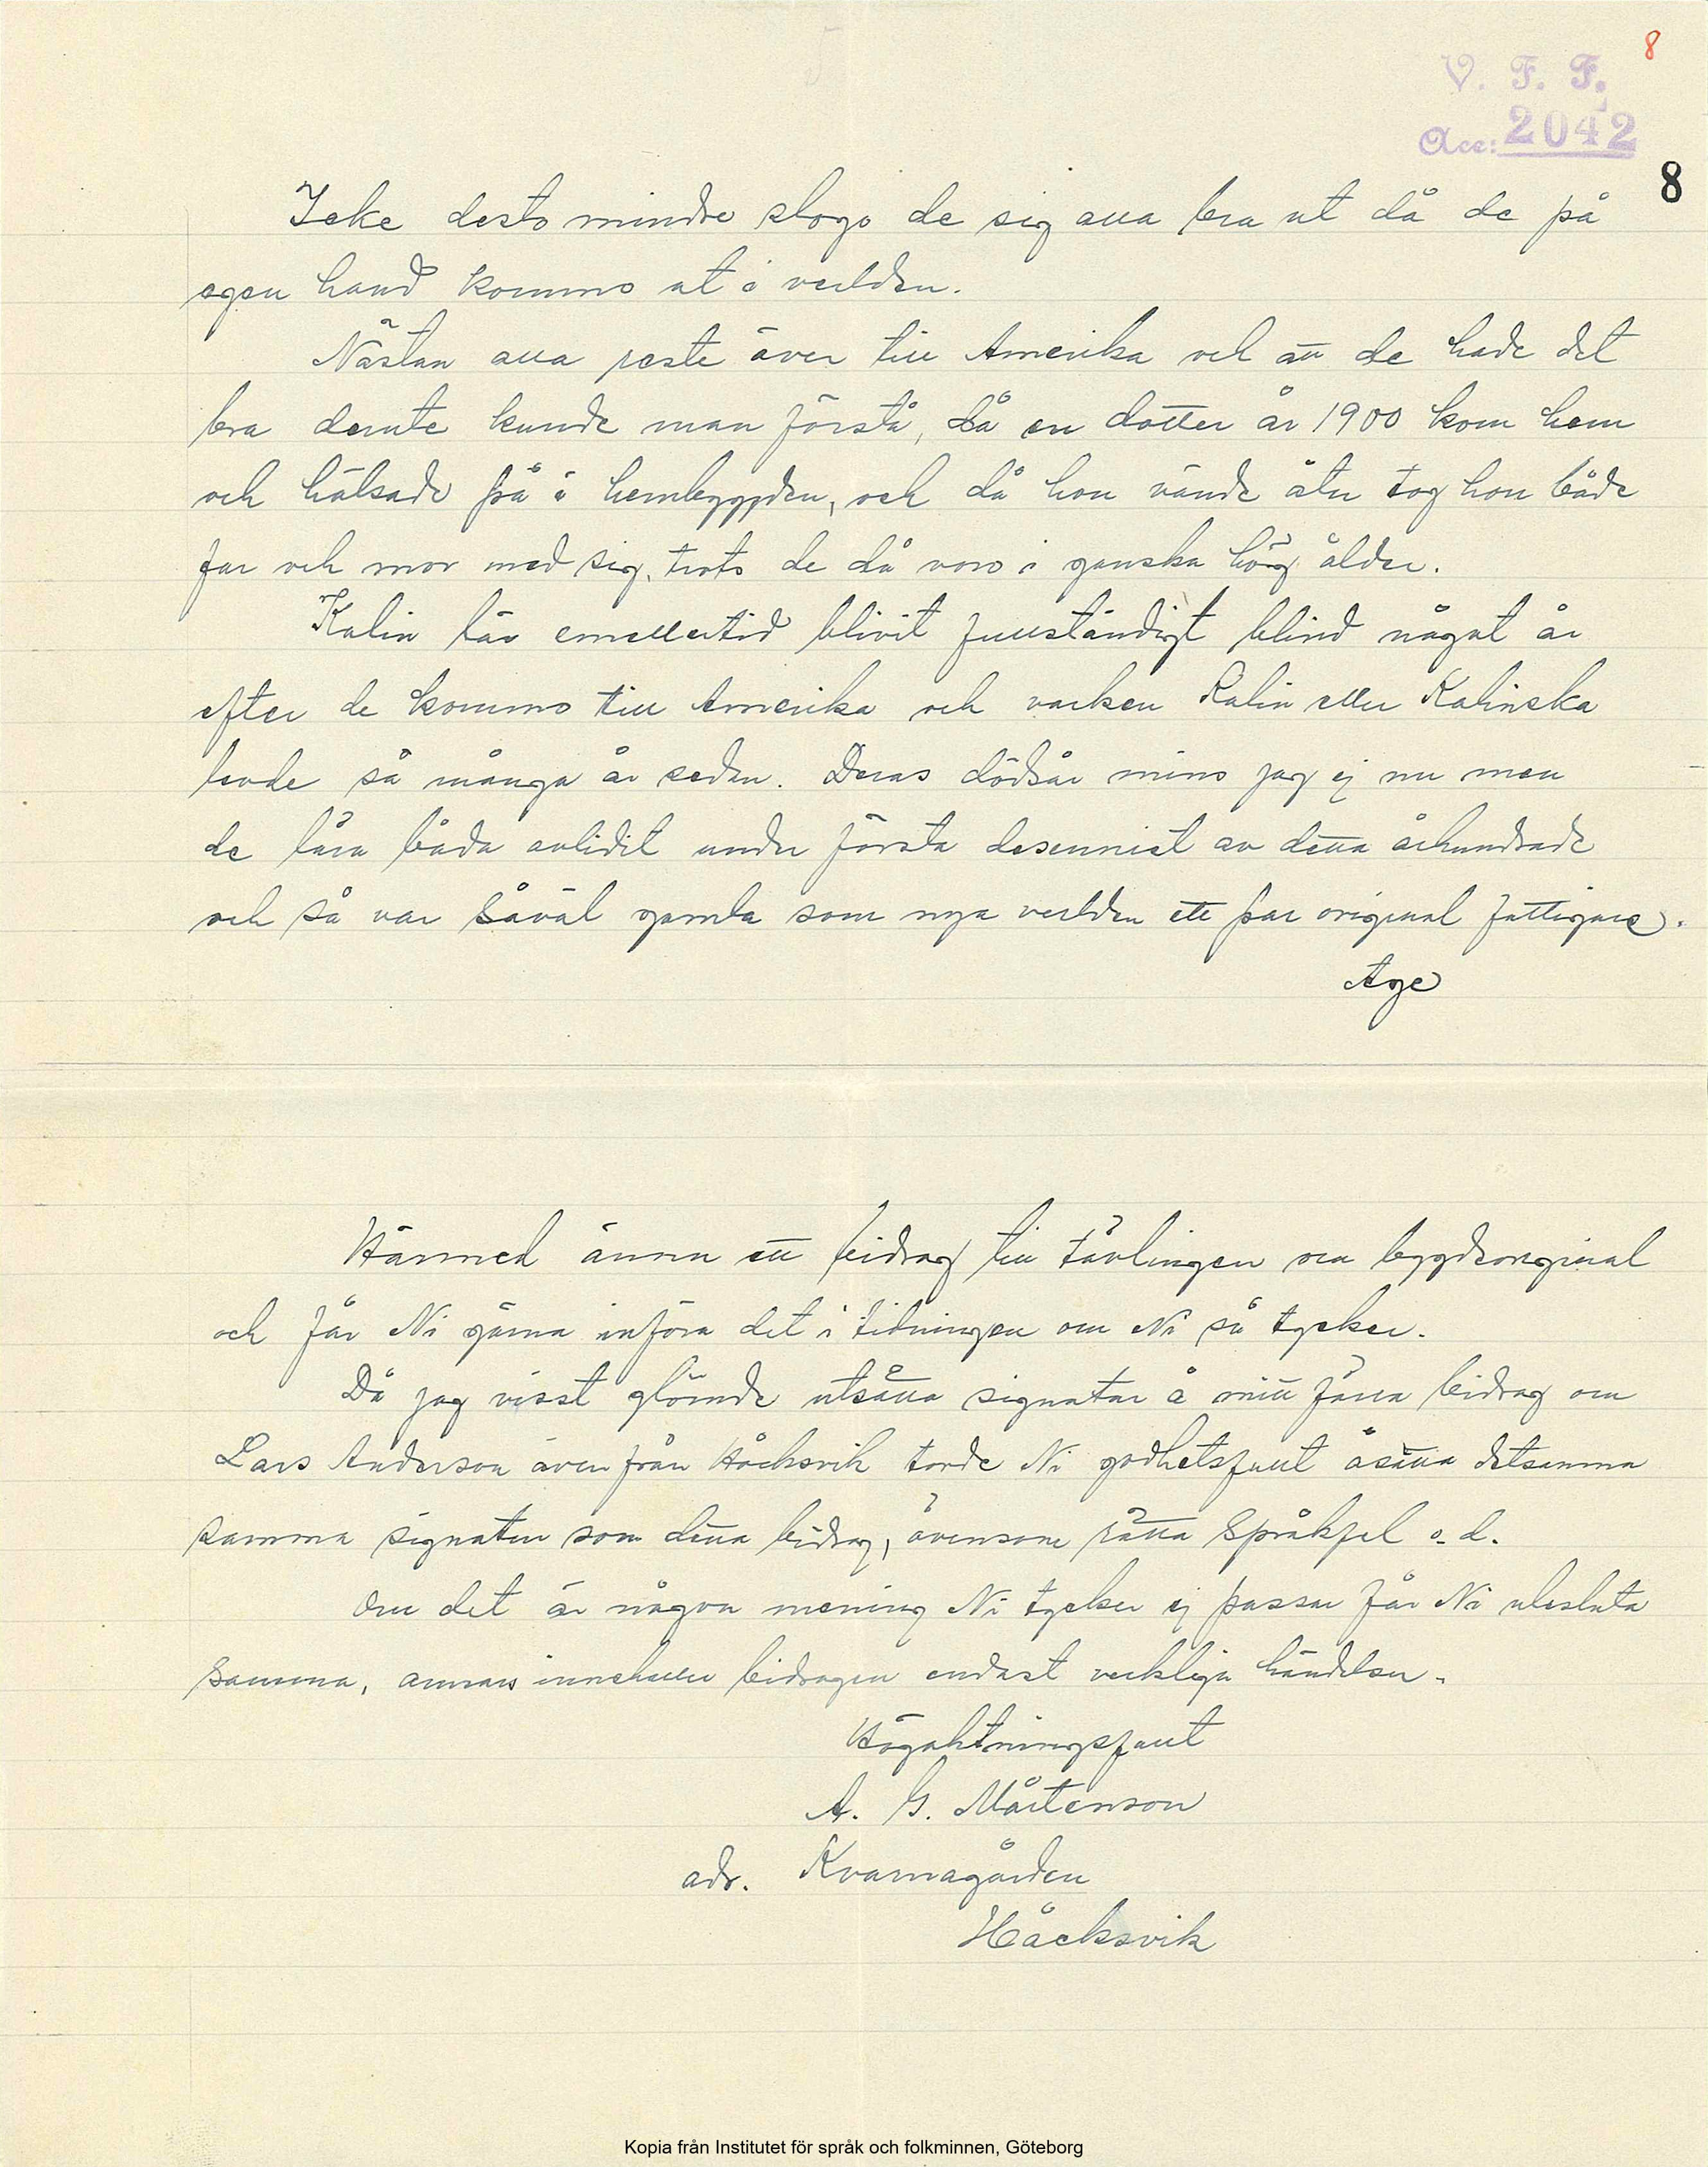 8
V. F. F.
Acc: 2042
8
Icke desto mindre slogo de sig alla bra ut då de på
egen hand kommo ut i verlden.
Nästan alla reste över till Amerika och att de hade det
bra derute kunde man förstå, då en dotter år 1900 kom hem
och hälsade på i hembygden, och då hon vände åter tog hon både
far och mor med sig, trots de då voro i ganska hög ålder.
Kalin lär emellertid blivit fullständigt blind något år
efter de kommo till Amerika och varken Kalin eller Kalinska
levde så många år sedan. Deras dödsår mins jag ej nu men
de lära båda avlidit under första desenniet av detta århundrade
och så var såväl gamla som nya verlden ett par original fattigare.
Age
Härmed ännu ett bidrag till tävlingen om bygdeoriginal
och får Ni gärna införa det i tidningen om Ni så tycker.
Då jag visst glömde utsätta signatur å mitt förra bidrag om
Lars Anderson även från Håcksvik torde Ni godhetsfullt åsätta detsamma
samma signatur som detta bidrag, ävensom rätta språkfel o. d.
Om det är någon mening Ni tycker ej passar får Ni utesluta
samma, annars innehåller bidragen endast verkliga händelser.
Högaktningsfullt
A. G. Mårtenson
adr. Kvarnagården
Håcksvik
Kopia från Institutet för språk och folkminnen, Göteborg